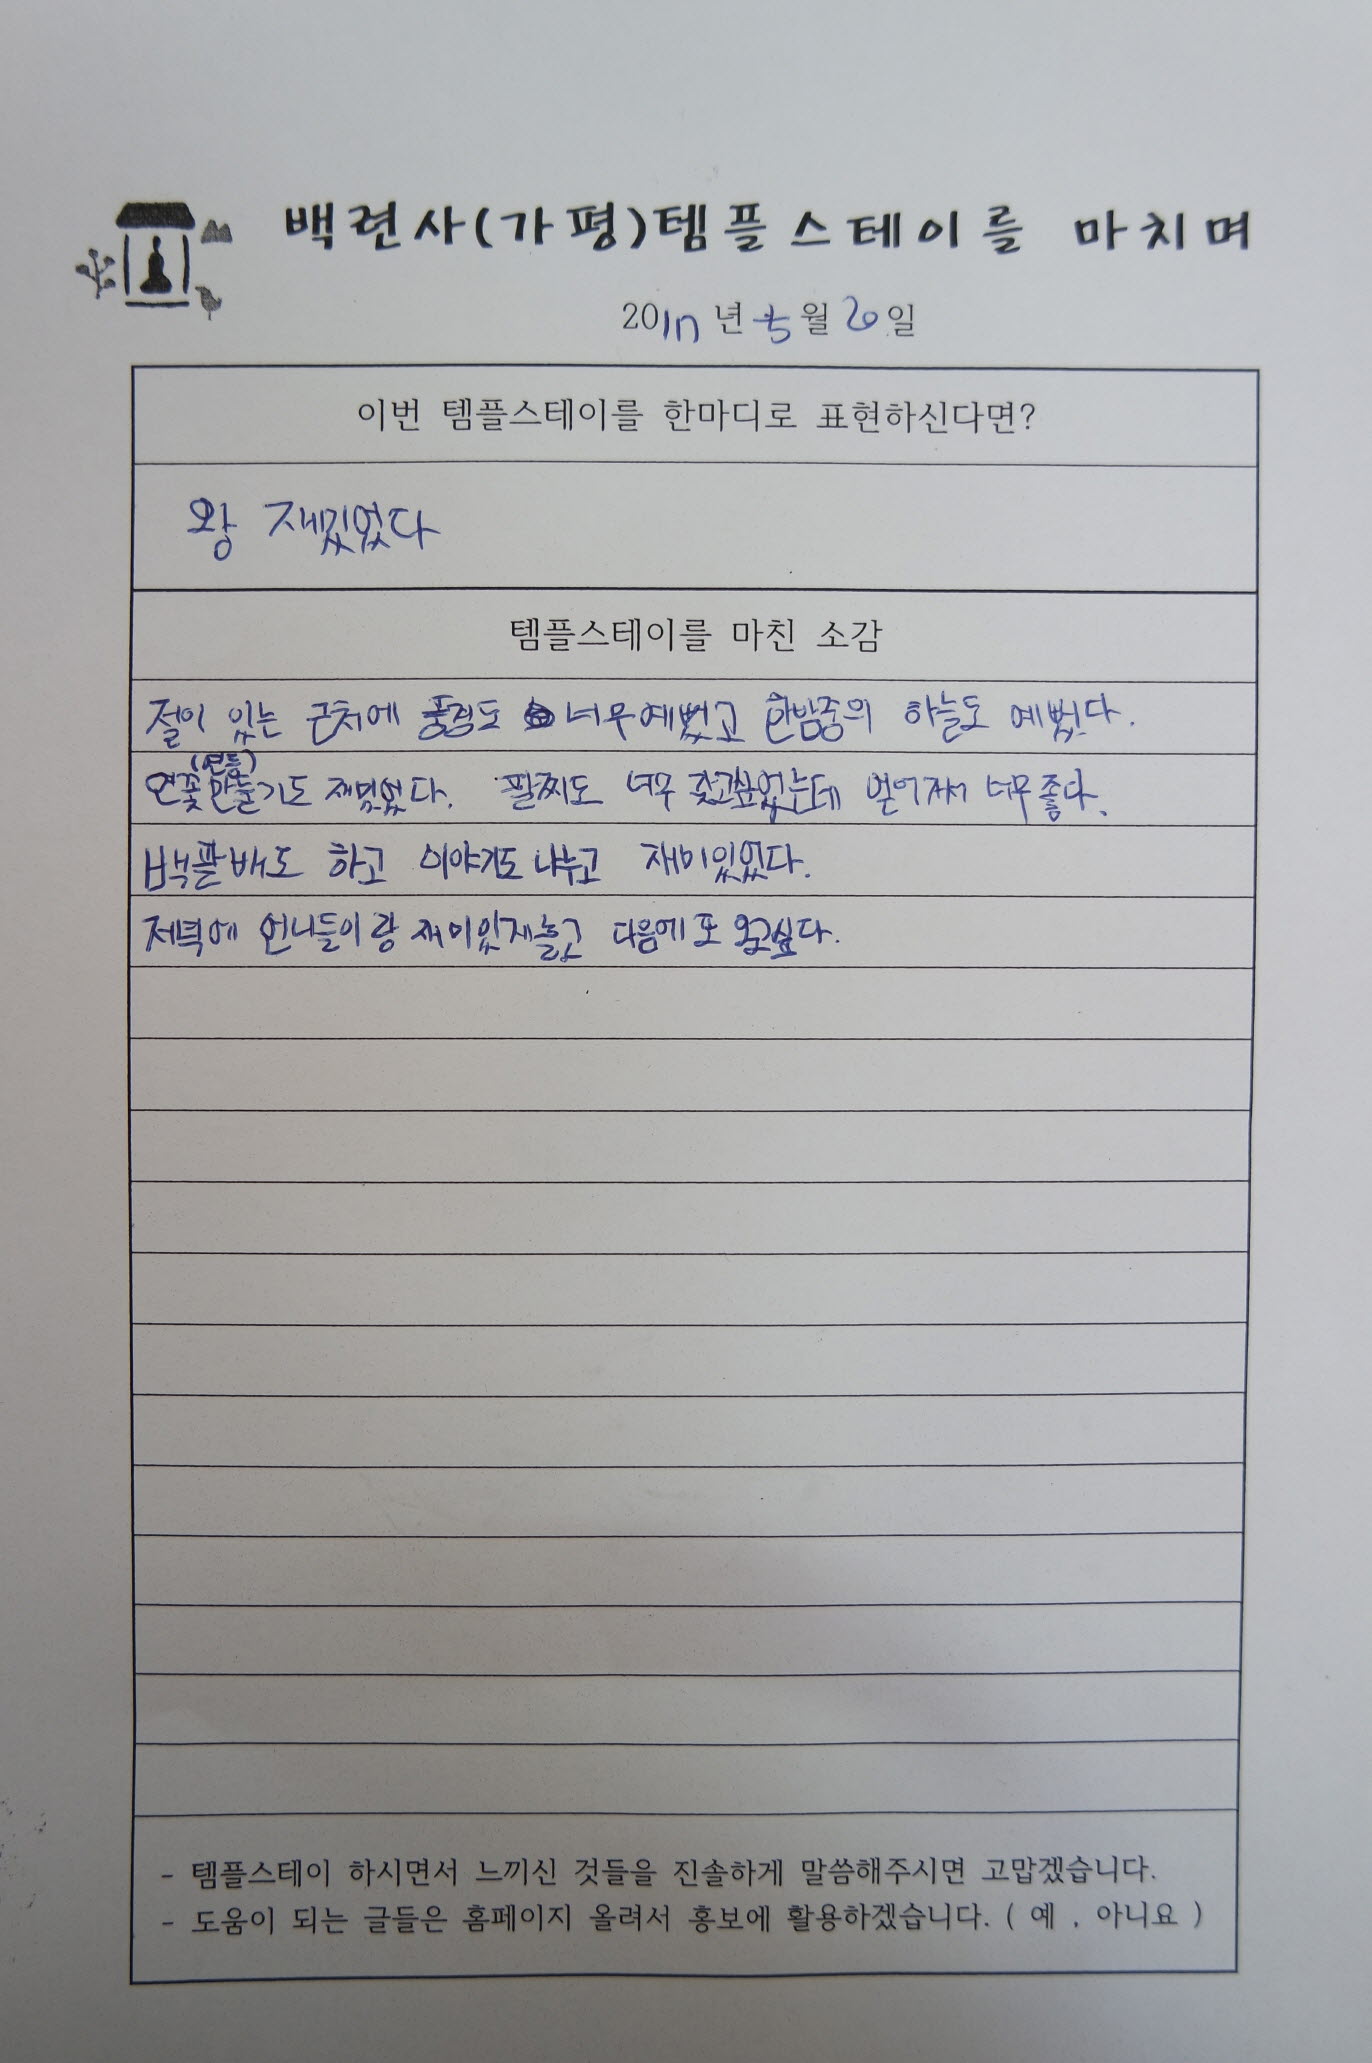 백련사(가평)템플스테이를 마치며
2017년 5월 6일
이번 템플스테이를 한마디로 표현하신다면?
왕 재밌었다
템플스테이를 마친 소감
절이 있는 근처에 풍경도 너무예뻤고 한밤중의 하늘도 예뻤다.
(연등)
연꽃만들기도 재밌었다. 팔찌도 너무 갖고싶었는데 얻어져서 너무좋다.
백팔배도 하고 이야기도 나누고 재미있었다.
저녁에 언니들이랑 재미있게놀고 다음에 또 오고싶다.
- 템플스테이 하시면서 느끼신 것들을 진솔하게 말씀해주시면 고맙겠습니다.
- 도움이 되는 글들은 홈페이지 올려서 홍보에 활용하겠습니다. ( 예 , 아니요 )